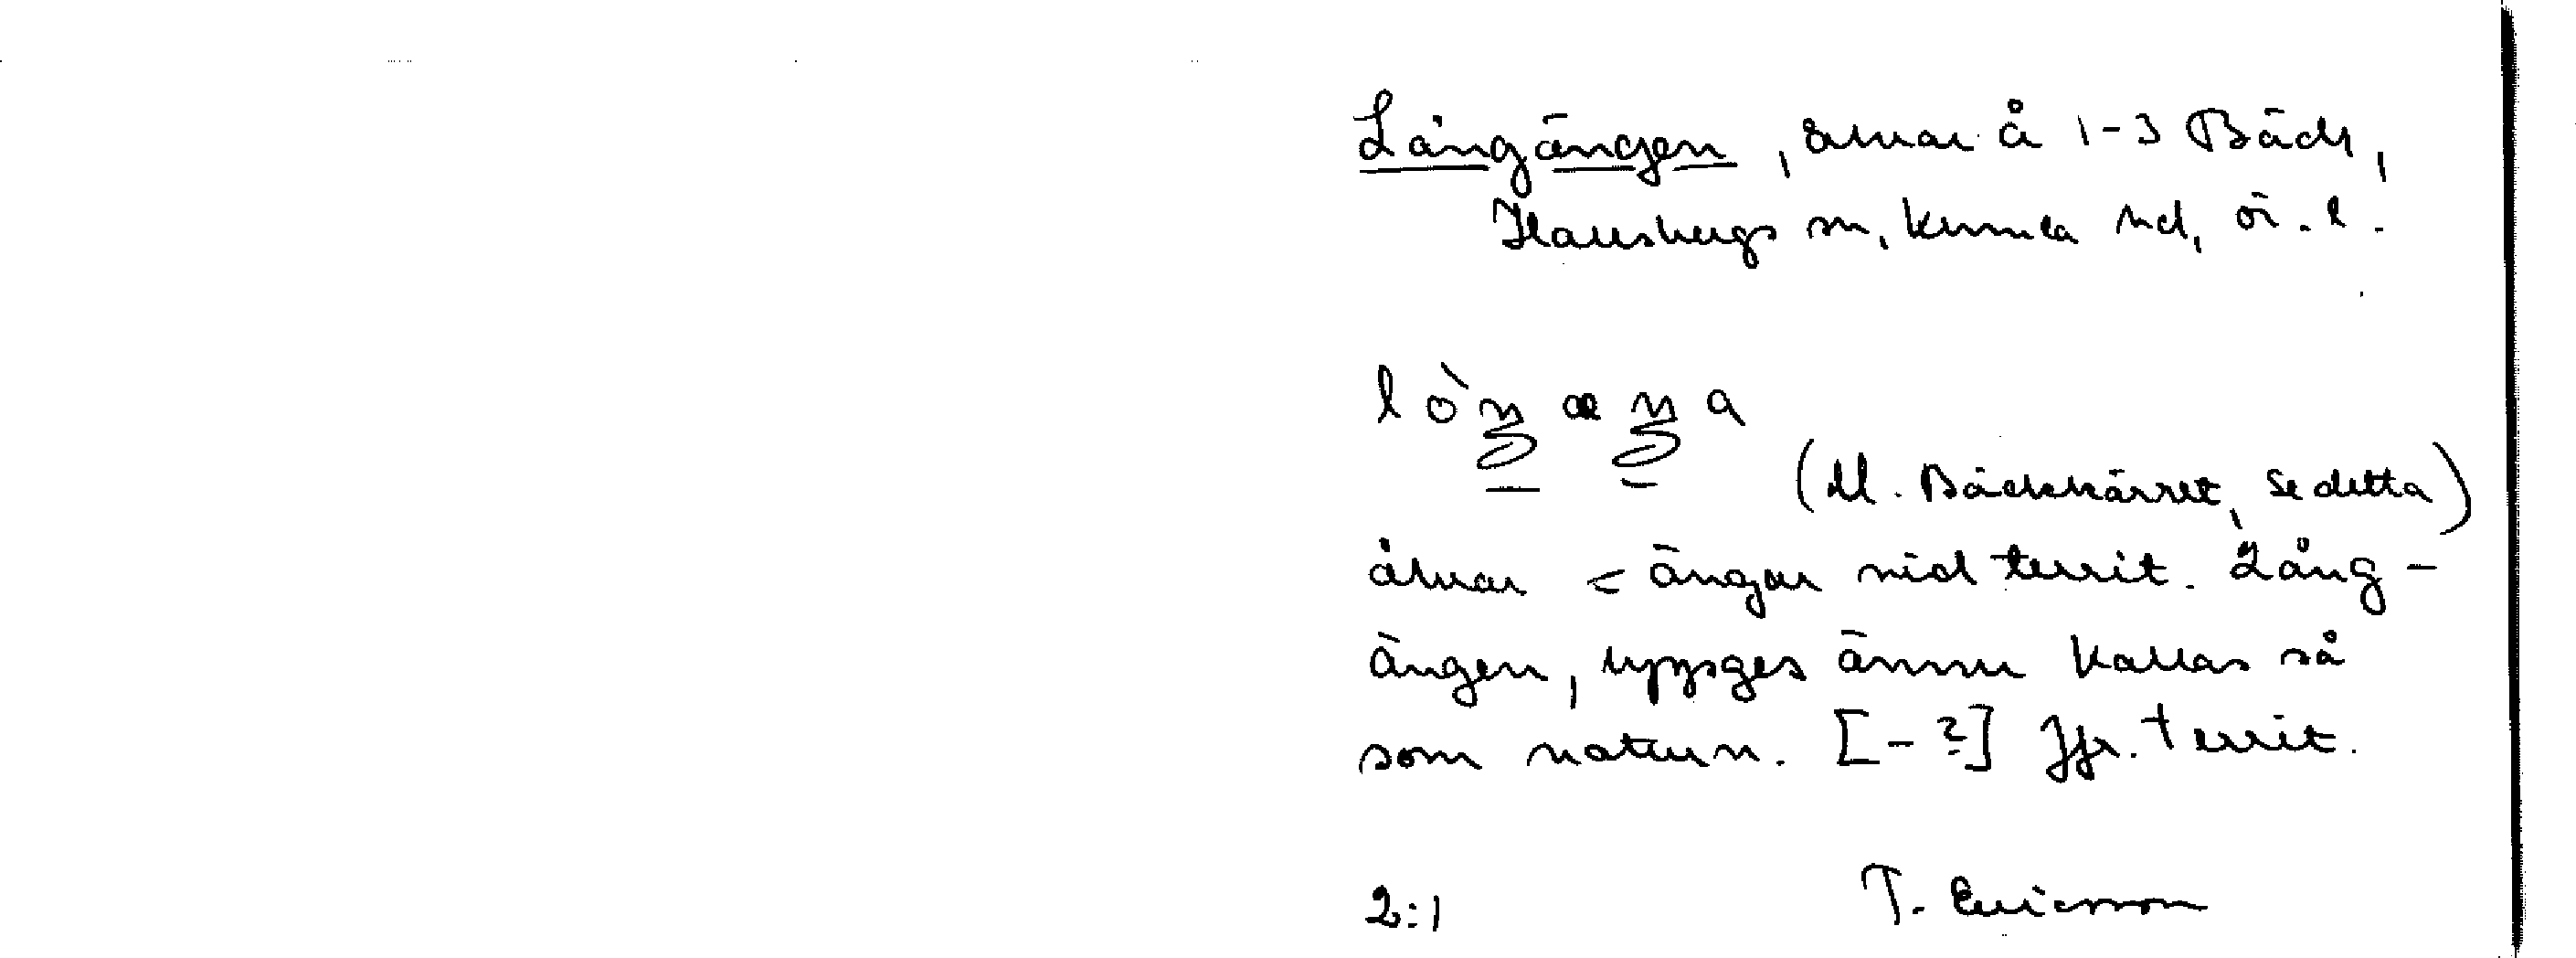 Långängen, åkrar å 1-3 Bäck,
Hallsbergs sn, Kumla hd, Ör. l.
lòŋæŋa
(Ul. Bäckkärret, se detta)
åkrar < ängar vid territ. Lång-
ängen, uppges ännu kallas så
som naturn. [-?] Jfr. territ.
2:1 T. Ericsson